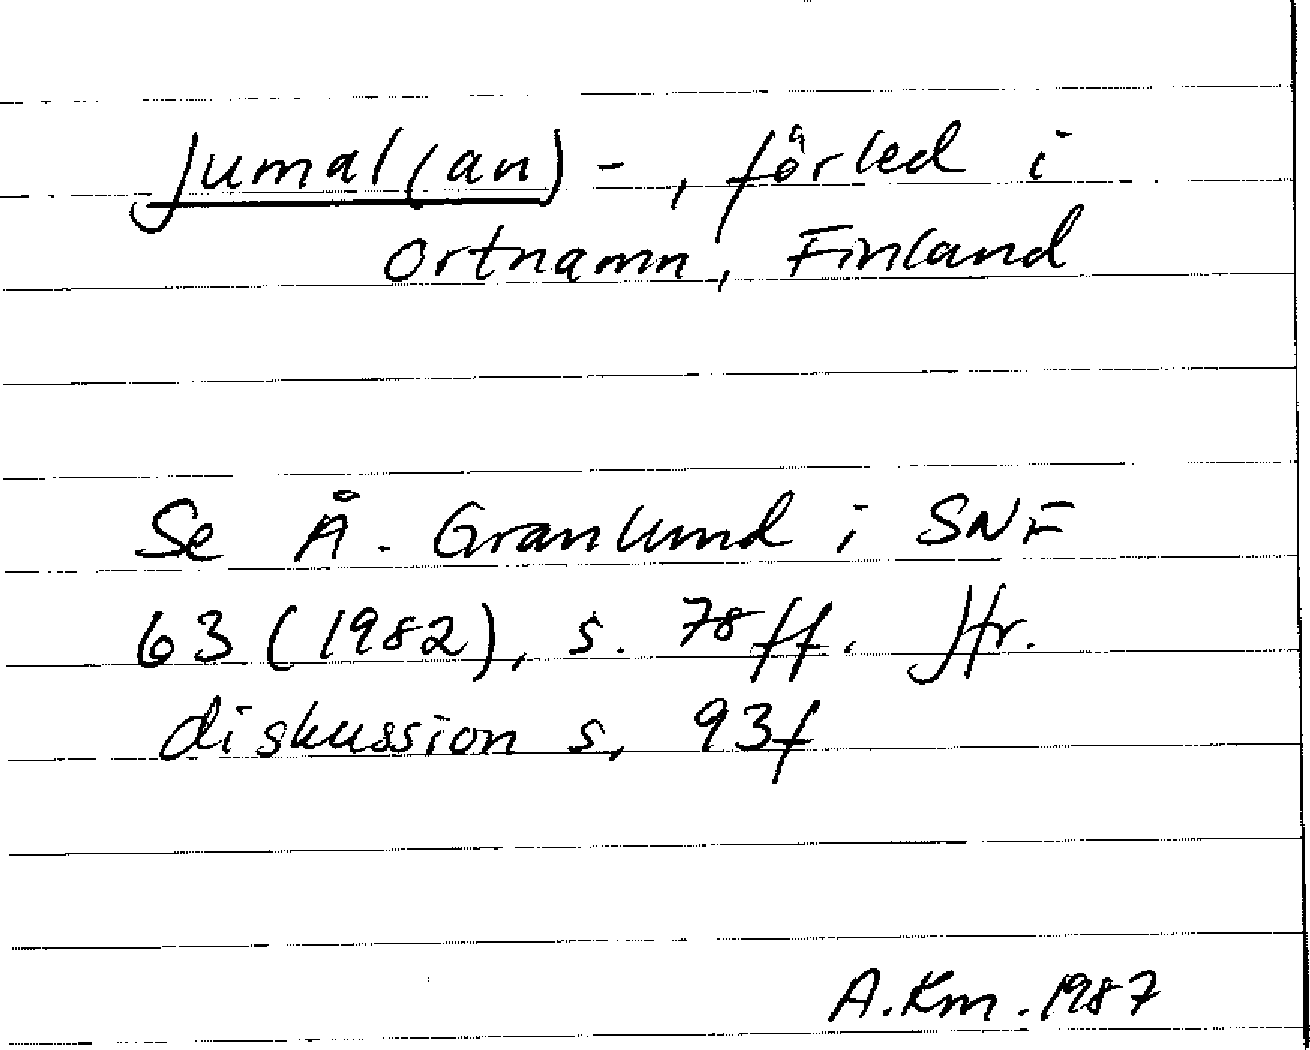 Jumal(an)-, förled i
ortnamn, Finland
Se Å. Granlund i SNF
63 (1982), s. 78ff. Jfr.
diskussion s. 93f
A.Km. 1987